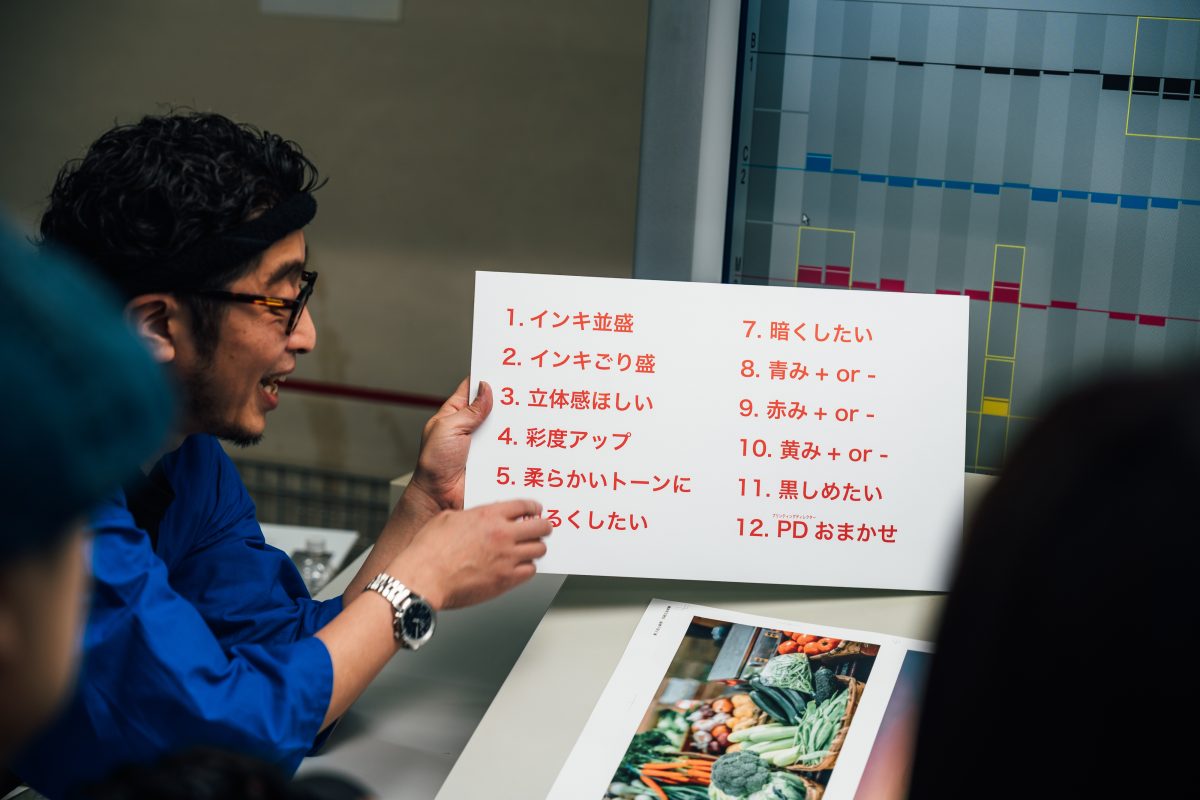 1. インキ並盛
2. インキごり盛
3. 立体感ほしい
4. 彩度アップ
5. 柔らかいトーンに
るくしたい
7. 暗くしたい
8. 青み + or -
9. 赤み + or -
10. 黄み + or -
11. 黒しめたい
プリンティングディレクター
12. PD おまかせ
B
1
C
2
M